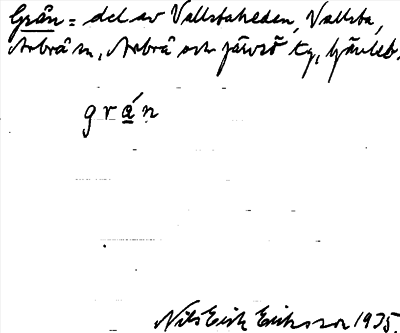 Grån = del av Vallstaheden, Vallsta,
Arbrå sn, Arbrå och Järvsö tg, Gävleb.
g r ǻ n
Nils Erik Eriksson 1975.